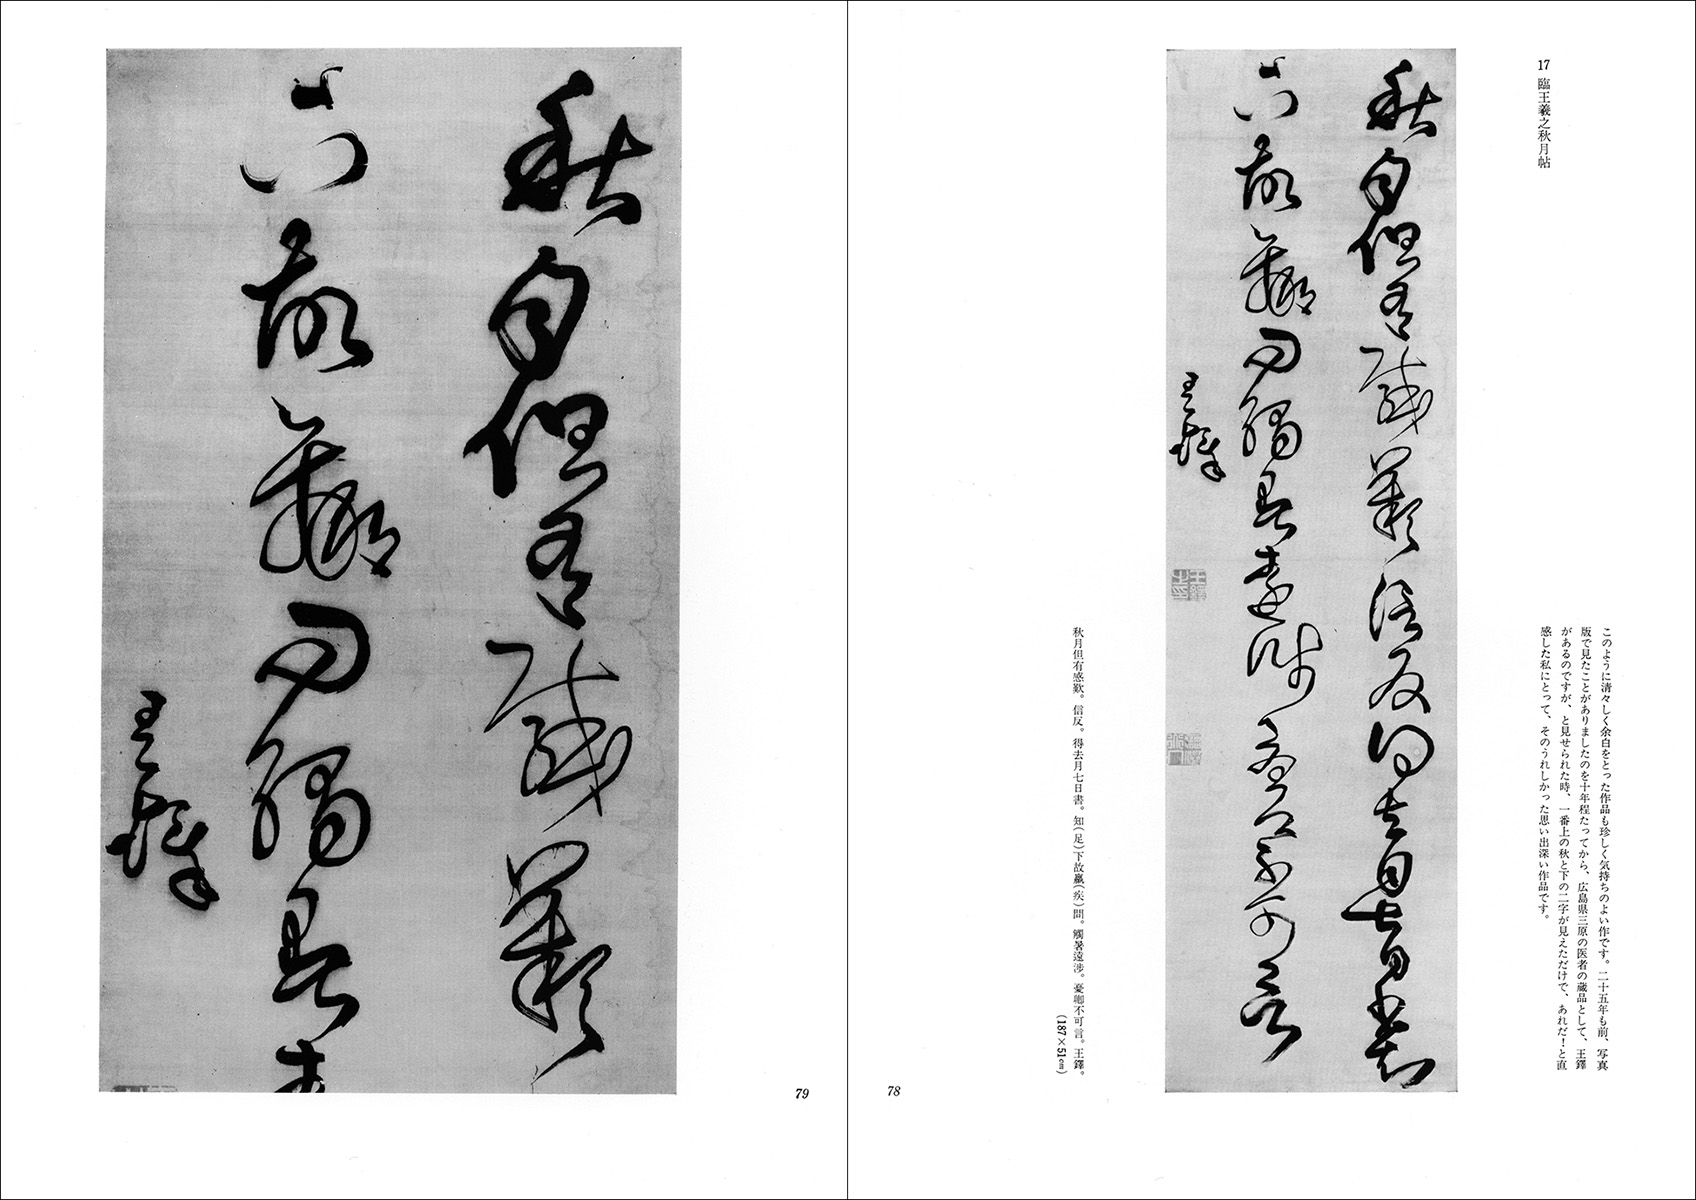 17 臨王羲之秋月帖
このように清々しく余白をとった作品も珍しく気持ちのよい作です。二十五年も前、写真
版で見たことがありましたのを十年程たってから、広島県三原の医者の蔵品として、王鐸
があるのですが、と見せられた時、一番上の秋と下の二字が見えただけで、あれだ!と直
感した私にとって、そのうれしかった思い出深い作品です。
秋月但有感歎信反得去月七日書知
下故羸問觸暑遠涉憂卿不可言
王鐸
秋月但有感歎。信反。得去月七日書。知(足)下故羸(疾)問。觸暑遠涉。憂卿不可言。王鐸。
(187×51cm)
78
秋月但有感歎
下故羸問觸暑
王鐸
79